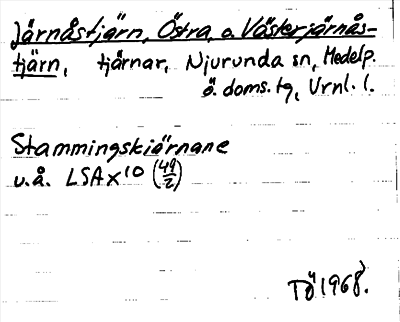 Järnåstjärn, Östra, o. Västerjärnås-
tjärn, tjärnar, Njurunda sn, Medelp.
ö. doms. tg, Urnl. l.
Stammingskiärnane
u.å. LSA X10 (49/2)
Tö 1968.